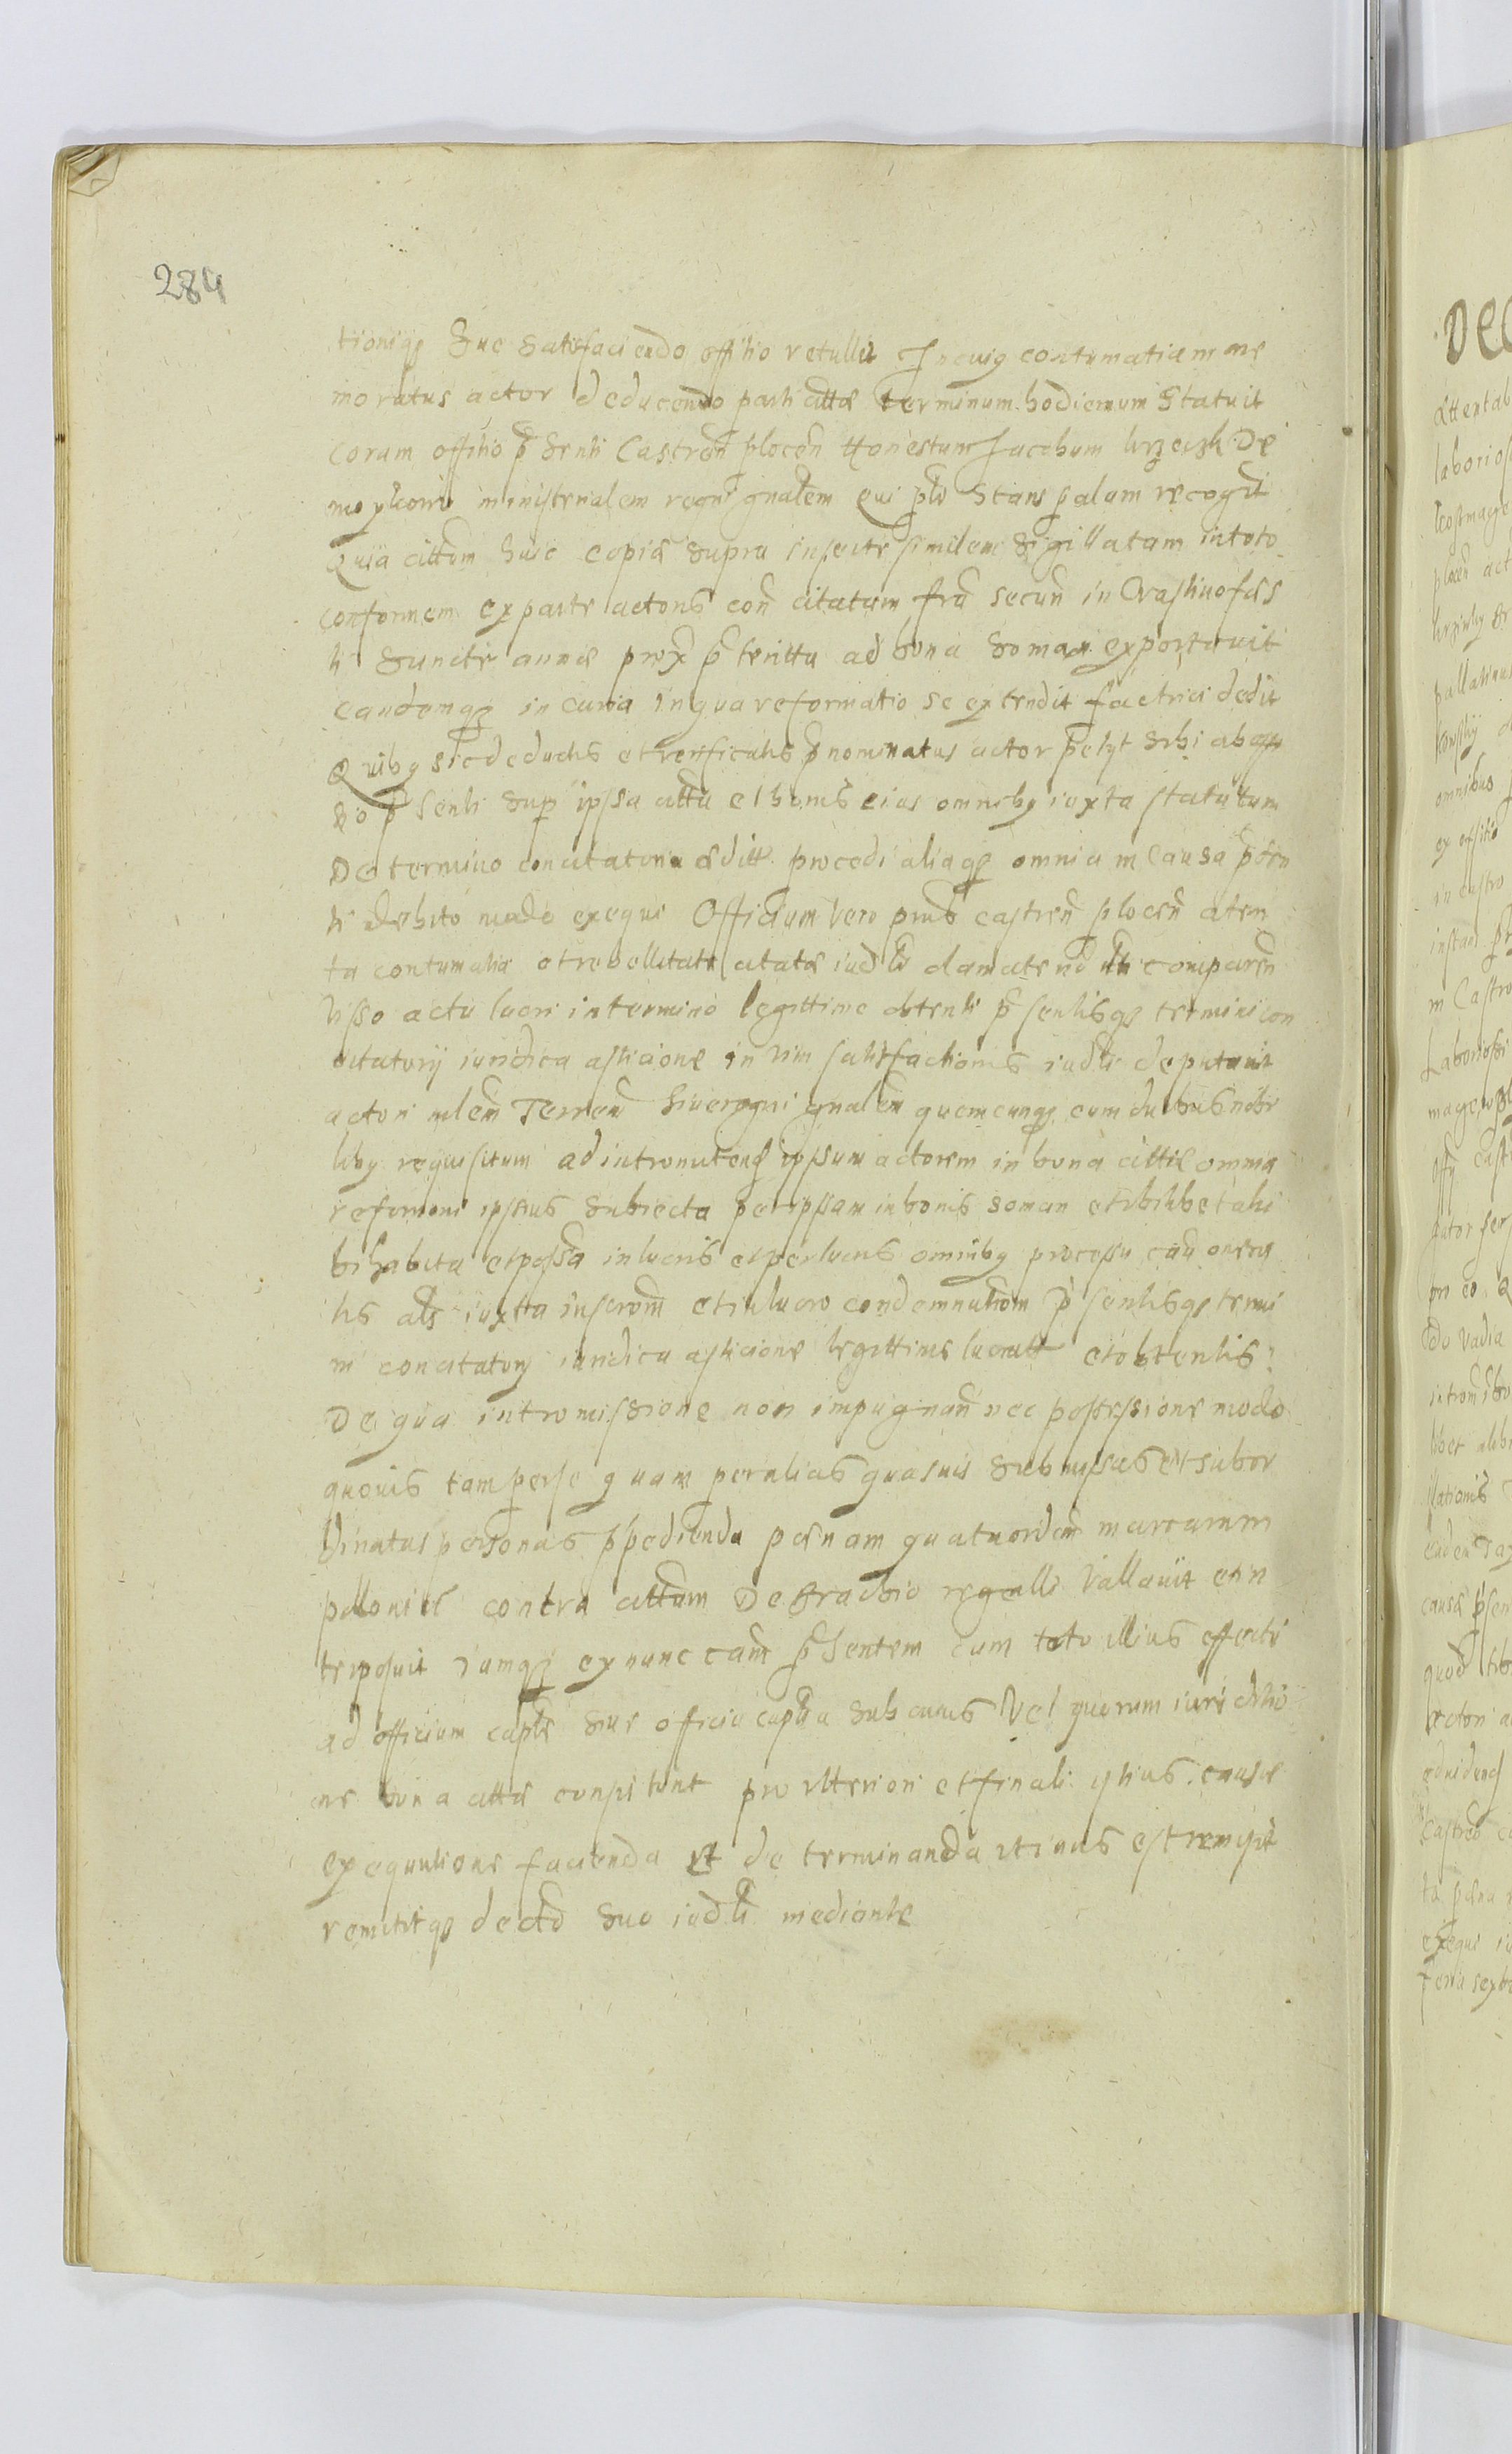 284
tioniqȝ suę satisfaciendo offitio retullit In cuiꝯ contumatiam me
moratus actor deducendo parti cittatæ terminum hodiernum Statuit
Coram offitio p̄senti Castren̄ plocen̄ Honestum Jacobum krzeczk De
ministerialem regni gn̄alem Qui pt̄r stans palam recogt
Quia cittom̄ huic copiæ supra insertæ similem Sigillatam in toto
conformem ex parte actoris con̄ citatam fr̄a secun̄ in Crastino fes
ti Sanctæ annæ prox̄ p̄teritta ad bona soman exportavit
Eandemqȝ in curia in qua reformatio se extendit factrici dedit
Quibꝯ sic deductis et verificatis p̄nominatus actor petyt sibi ab offi
tio p̄senti sup̄ ipsa citta et bonis eius omnibꝯ iuxta statutum
De termino concitatorio æditt procedi aliaqȝ omnia in Causa p̄sen
ti debito modo exequi Officium vero pn̄s castren̄ plocen̄ aten
ta contumatia et rebellitate citatæ iudtr clamatæ nō comparen̄
visso actu lucri in termino legittime obtenti p̄sentisqȝ termini con
citatorij iuridica astitione in vim satisfactionis iudtr deputavit
actori mlem̄ Terren̄ sive regni gn̄alem quemcunqȝ cum duobus nobi
libꝯ requisitum ad intromitend̄ ipsum actorem in bona cittæ omnia
reformoni ipsius subiecta per ipsam in bonis soman et ubilibet ali
bi habita et possa in lucris et per lucris omnibꝯ processu causæ
tis als iuxta inscrom̄ et in lucro condemnatiom̄ p̄sentisqȝ termi
ni concitatorij iuridica astitione legittime lucratt et obtentis:
De qua intromissione non impugnan̄ nec possessione modo
quovis tam per se quam per alias quasvis submissas et subor
dinatas personas īpedienda pœnam quatuordecim̄ marcarum
pollonicæ contra cittam regulli Vallavit et in
terposuit iamqȝ ex nunc eam̄ p̄sentem cum toto illius effectu
ad officium captle sive officia captlia sub cuius vel quorum iurisditio
ne bona cittæ consistunt pro ulteriori et finali ystius causæ
exequutione facienda et determinanda remisit
remititqȝ decto suo iudtr mediante